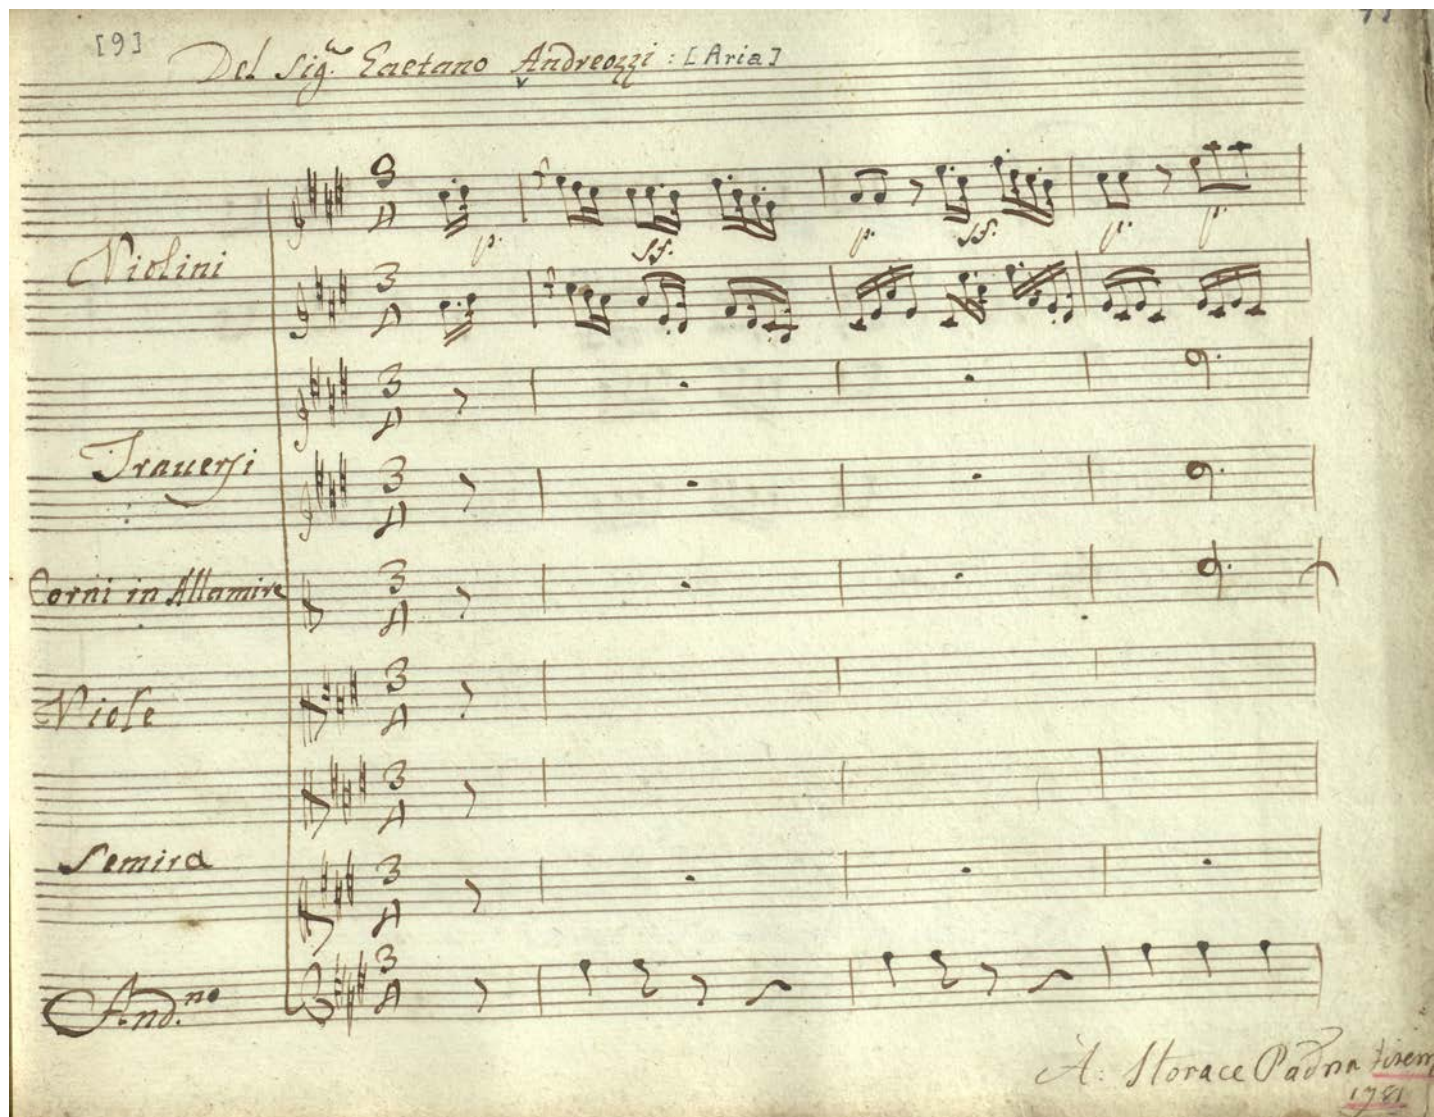 [9]
Del Sig.re Gaetano Andreozzi: [Aria]
Violini
p. sf. p. sf. p. p.
Traversi
Corni in Allamire
Viole
Semira
And.no
A: Storace Padrn firem
1781